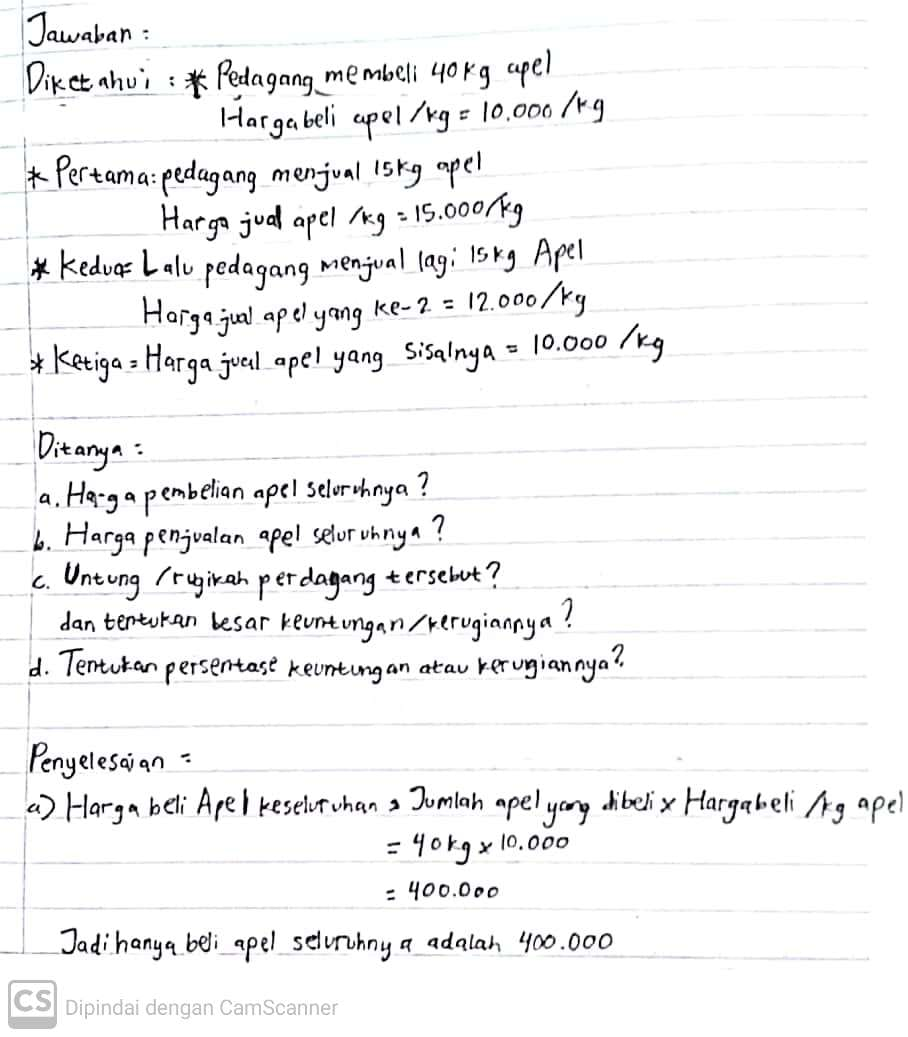 Jawaban :
Diketahui : * Pedagang membeli 40kg apel
Harga beli apel /kg = 10.000 /kg
* Pertama: pedagang menjual 15kg apel
Harga jual apel /kg = 15.000/kg
* Kedua= Lalu pedagang menjual lagi 15kg Apel
Harga jual apel yang ke-2 = 12.000/kg
* Ketiga = Harga jual apel yang sisalnya = 10.000 /kg
Ditanya :
a. Harga pembelian apel seluruhnya ?
b. Harga penjualan apel seluruhnya ?
c. Untung /rugikah perdagang tersebut?
dan tentukan besar keuntungan/kerugiannya ?
d. Tentukan persentase keuntungan atau kerugiannya?
Penyelesaian =
a) Harga beli Apel keseluruhan = Jumlah apel yang dibeli x Harga beli /kg apel
= 40kg x 10.000
= 400.000
Jadi hanya beli apel seluruhnya adalah 400.000
CS Dipindai dengan CamScanner